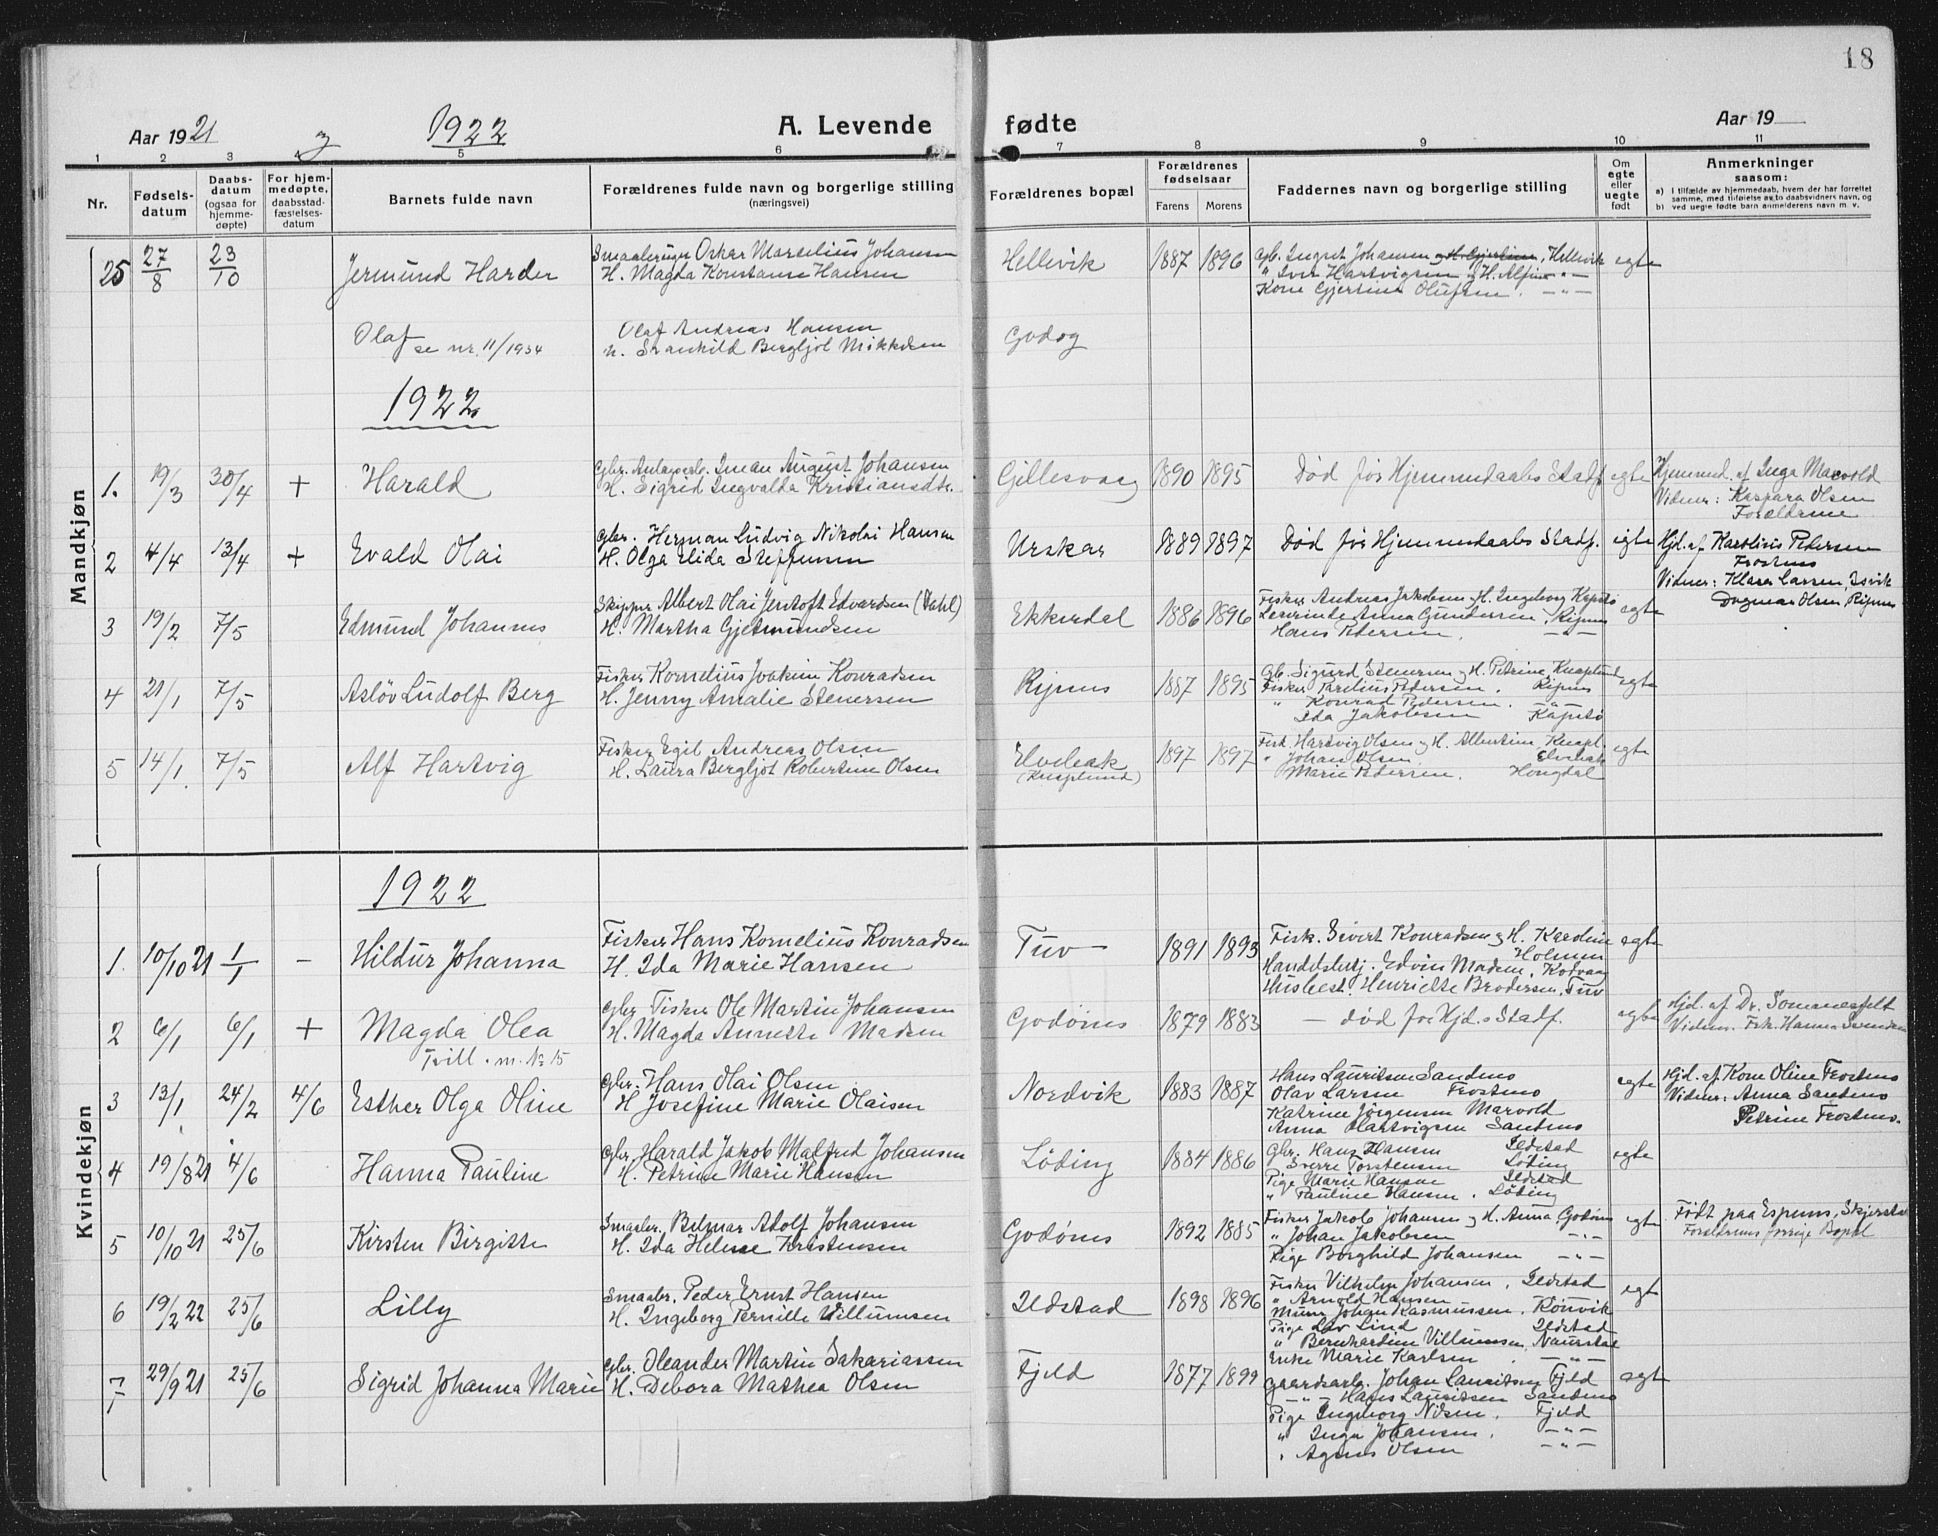 18
Aar 1921 og 1922 A. Levende fødte Aar 19
1 2 3 4 5 6 7 8 9 10 11
Nr.
Fødsels-
datum
Daabs-
datum
(ogsaa for
hjemme-
døpte)
For hjem-
medøpte,
daabsstad-
fæstelses-
datum
Barnets fulde navn
Forældrenes fulde navn og borgerlige stilling
(næringsvei)
Forældrenes bopæl
Forældrenes
fødselsaar
Farens Morens
Faddernes navn og borgerlige stilling
Om
egte
eller
uegte
født
Anmerkninger
saasom:
a) I tilfælde av hjemmedaab, hvem der har forrettet
samme, med tilføielse av to daabsvidners navn, og
b) ved uegte fødte barn anmelderens navn m. v.
Mandkjøn
25 27/8 23/10 Jermund Harder
Smaabruger Oskar Marselius Johansen
H. Magda Konstanse Hansen
Hellevik 1887 1896
Gb. Ingvat Johansen Hellevik
" Iver Hartvigsen og H. Alfine -"-
Kone Gjertine Olufsen. -"-
egte
Olaf
se nr. 11/1934
Olaf Andreas Hansen
H. Svanhild Bergljot Mikkelsen
Godøy
1922
1. 19/3 30/4 + Harald
Gbr. Anlægsarb. Iman August Johansen
H. Sigrid Ingvalda Kristiansdtr.
Gillesvaag 1890 1895
Død før Hjemmedaabs Stadf. egte
Hjemmed. af Inga Marvold
Vidner: Kaspara Olsen
Forældrene
2 4/4 13/4 + Evald Olai
Gbr. Herman Ludvig Nikolai Hansen
H. Olga Elida Steffensen
Urskar 1889 1897
Død før Hjemmedaabs Stadf. egte
Hjd. af Karolius Pedersen
Frostmo
Vidner: Klara Larsen, Isvik
Dagmar Olsen, Ripnes
3 19/2 7/5 Edmund Johannes
Skipper Albert Olai Jerstoft Edvardsen (Dahl)
H. Martha Gjetmundsen
Ekkerdal 1886 1896
Fisker Andreas Jakobsen og H. Ingeborg Kapstø
Lererinde Anna Gundersen, Ripnes
Hans Pedersen. -"-
egte
4 21/1 7/5 Asløv Ludolf Berg
Fisker Kornelius Joakim Konradsen
H. Jenny Amalie Stenersen
Ripnes 1887 1895
Gb. Sigurd Stenersen og H. Petrine, Knaplund
Fisker Parelius Pedersen. Ripnes
" Konrad Pedersen. -"-
Ida Jakobsen Kapstø
egte
5 14/1 7/5 Alf Hartvig
Fisker Egil Andreas Olsen
H. Laura Bergljot Robertine Olsen
Elvebak
(Knaplund)
1897 1897
Fisk. Hartvig Olsen og H. Albertine, Knapl.
" Johan Olsen Elvebak
Marie Pedersen. Hongdal
egte
Kvindekjøn
1922
1. 10/10 21 1/1 - Hildur Johanna
Fisker Hans Kornelius Konradsen
H. Ida Marie Hansen
Tuv 1891 1893
Fisk. Sivert Konradsen og H. Karoline
Holmen
Handelsbetj. Edvin Madsen, Kodvaag
Husbest. Henriette Brodersen, Tuv
egte
2 6/1 6/1 + Magda Olea
Tvill. m. No 15
Gbr. Fisker Ole Martin Johansen
H. Magda Annette Madsen
Godønes 1879 1883
- død før Hjd.s Stadf. egte
Hjd. af Dr. Sommerfelt
Vidner. Frk. Hanna Svendsen
3 13/1 24/2 4/6 Esther Olga Oline
Gbr. Hans Olai Olsen
H. Josefine Marie Olaisen
Nordvik 1883 1887
Hans Lauritsen Sandmo
Olav Larsen Frostmo
Katrine Jörgensen Marvold
Anna Hartvigsen Sandmo
egte
Hjd. af Kone Oline Frostmo
Vidner: Anna Sandmo
Petrine Frostmo.
4 19/8 21 4/6 Hanna Pauline
Gbr. Harald Jakob Malfred Johansen
H. Petrine Marie Hansen
Løding 1884 1886
Gbr. Hans Hansen Ildstad
" Sverre Torstensen Løding
Pige Marie Hansen Ildstad
" Pauline Hansen. Løding
egte
5 10/10 21 25/6 Kirsten Birgitte
Smaabr. Bilmar Adolf Johansen
H. Ida Helene Kristensen
Godønes 1892 1885
Fisker Jakob Johansen og H. Anna Godønes
" Johan Jakobsen -"-
Pige Borghild Johansen -"-
egte
Født paa Espenes, Skjerstad
Forældrenes forrige Bopæl
6 19/2 22 25/6 Lilly
Smaabr. Peder Ernst Hansen
H. Ingeborg Pernille Willumsen
Ildstad 1898 1896
Fisker Vilhelm Johansen, Ildstad
" Arnold Hansen
Murer Johan Rasmussen, Rönvik
Pige Lov Lind Ildstad
" Bernhardine Villumsen, Naurstad
Enke Marie Karlsen . -"-
egte
7 29/9 21 25/6 Sigrid Johanna Marie
Gbr. Oleander Martin Sakariassen
H. Debora Mathea Olsen
Fjeld 1877 1899
Gaardsarb. Johan Lauritsen Fjeld
-"- Hans Lauritsen Sandmo
Pige Ingeborg Nilsen. Fjeld
" Inga Johansen. -"-
" Agnes Olsen -"-
egte